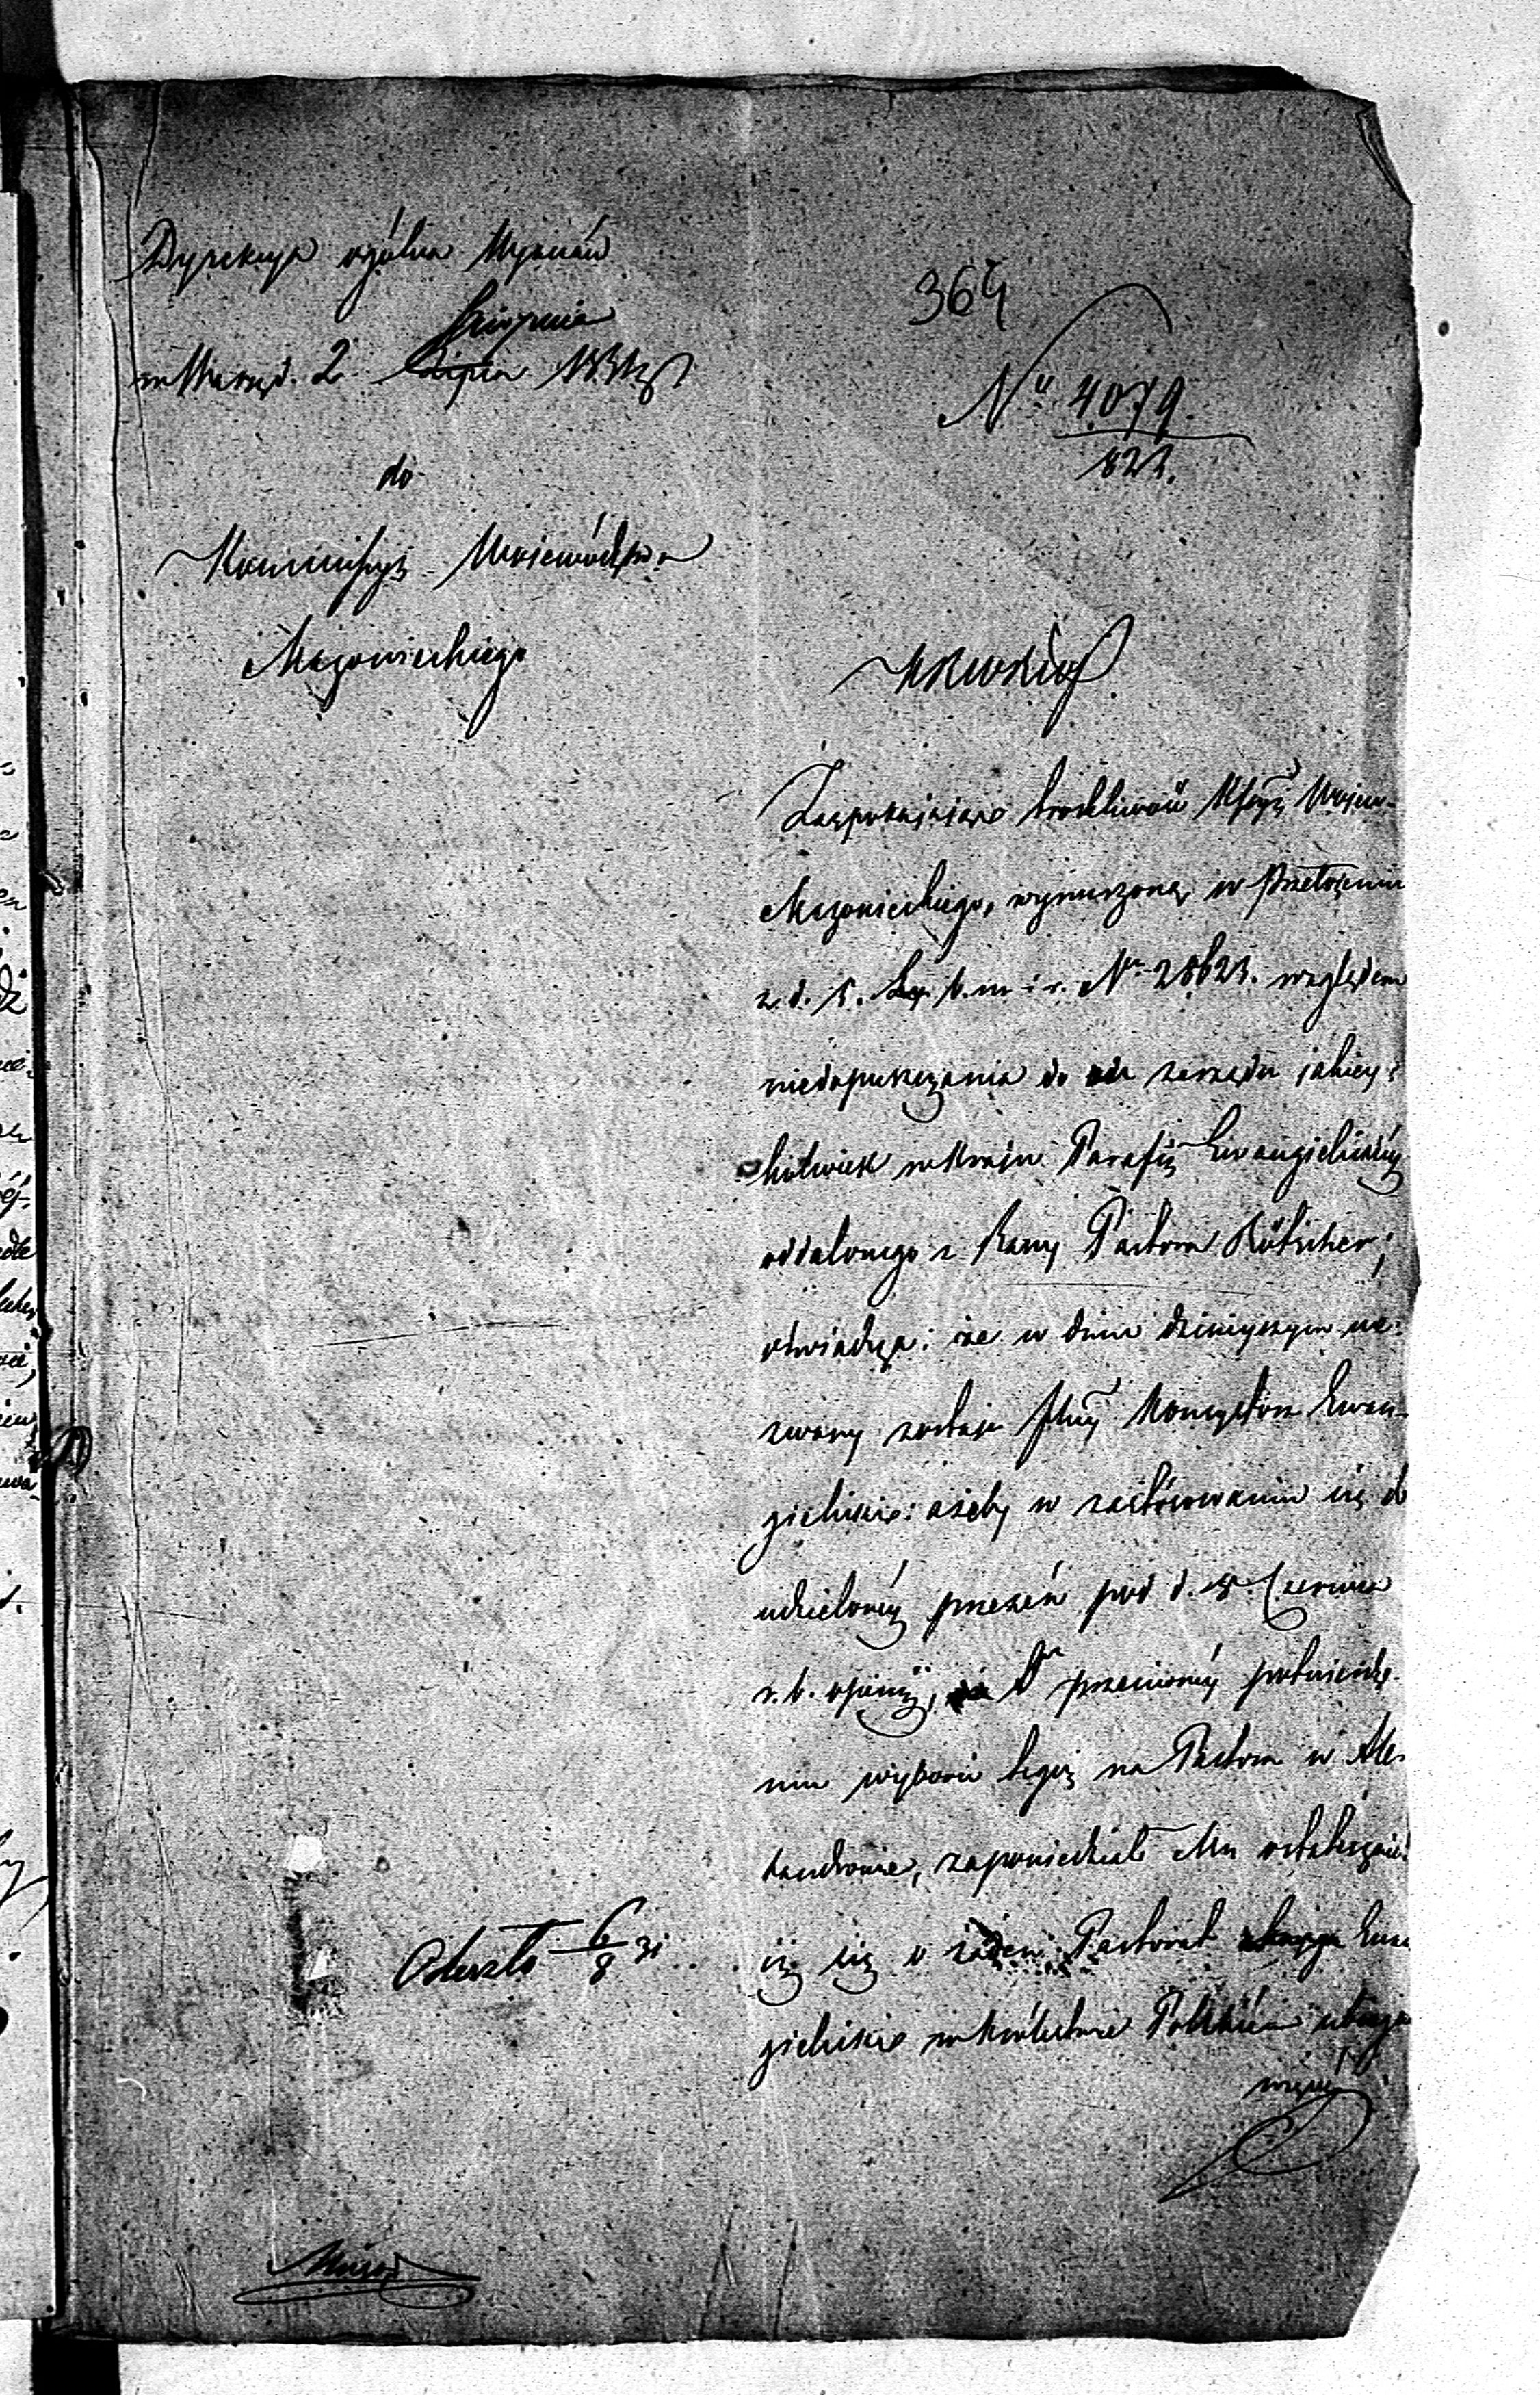 Dyrekcya ogólna Wyznań
364
Sierpnia
w Warsz. d. 2 Lipca 1831 r.
Nº 4079
821.
do
Kommissyi Województwa
Mazowieckiego
Zaspokajając troskliwość Kssyi Wojew.
Mazowieckiego, wynurzoną w Przełożeniu
z d. 5. b. m. i r. Nr 28621. względem
niedopuszczania do zarządu jakiey-
kolwiek w kraju Parafii Ewangelickiéy
oddalonego z Rawy Pastora Rötscher;
oświadcza: że w dniu dzisieyszym we-
zwany zostaje Konsystorz Ewan-
gielicki: ażeby w zastósowaniu się do
udzielonéy przezeń pod d. Czerwca
r. b. opinii, przeciwnéy potwierdze-
niu wyboru tegoż na Pastora w Ale-
xandrowie, zapowiedział Mu ostatecznie:
iż się o żaden Pastorat Ewan
gielicki w Królestwie Polskiém ubiegać
więcéy
Odeszło 6/8 31